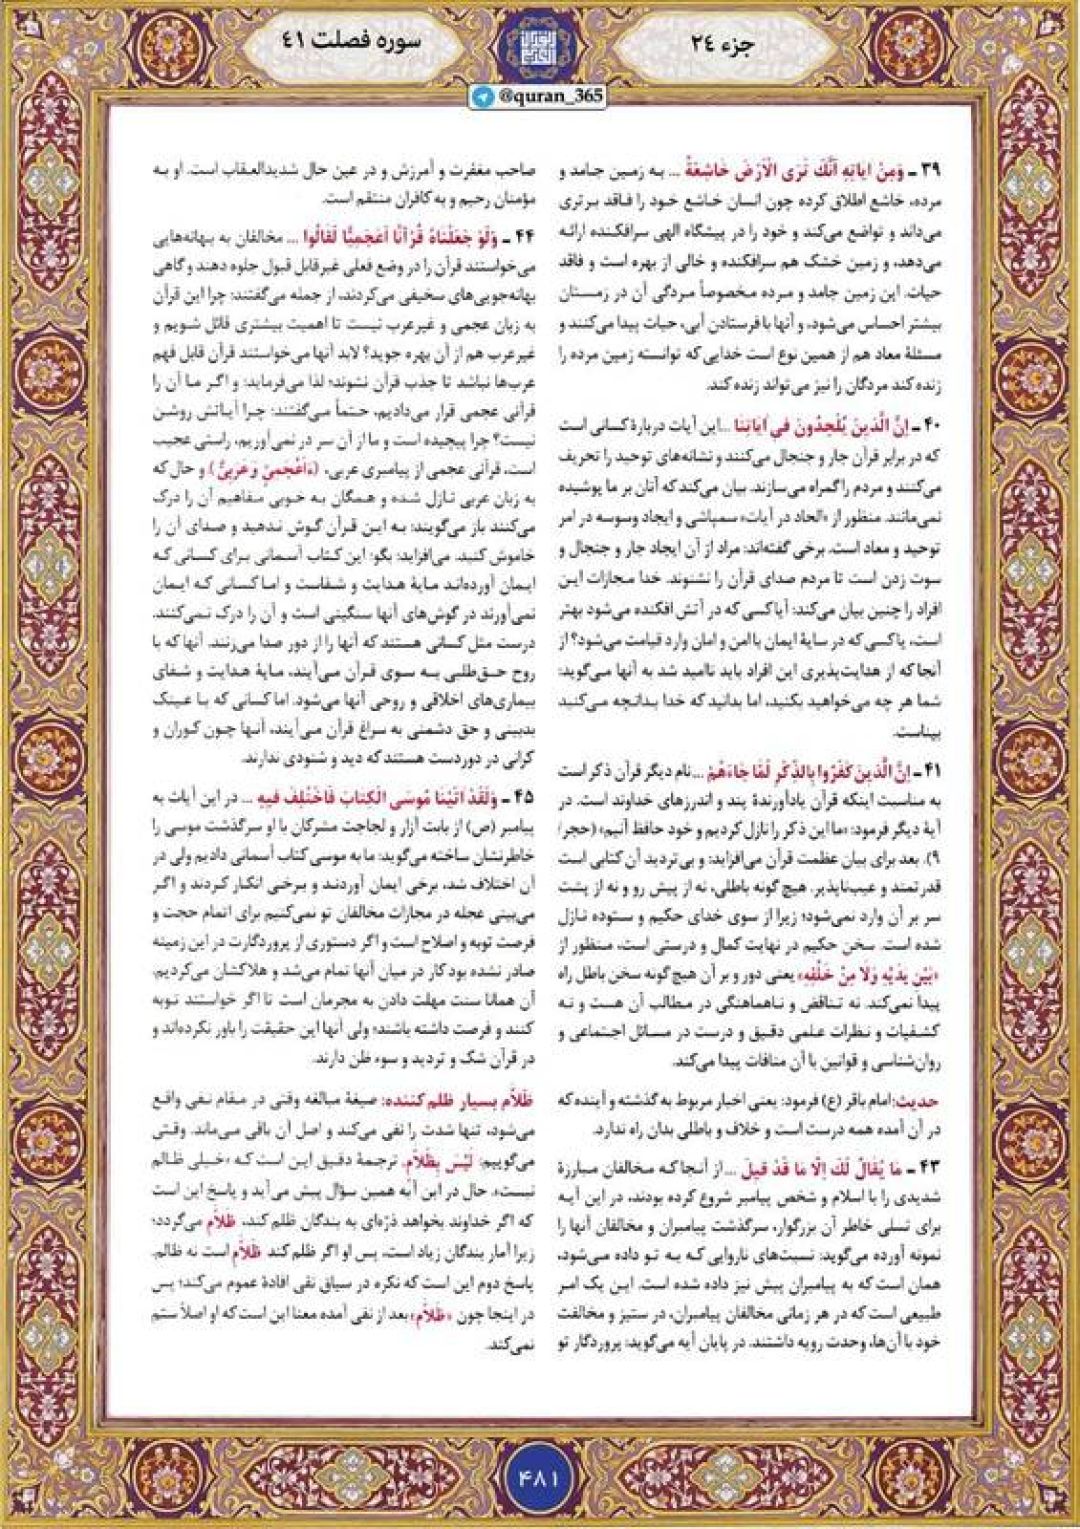 جزء ۲۴
سوره فصلت ۴۱
@quran_365
۳۹ ـ وَمِنْ ایَاتِهِ اَنَّكَ تَرَى الْاَرْضَ خَاشِعَةً ... به زمین جامد و
مرده، خاشع اطلاق کرده چون انسان خاشع خود را فاقد برتری
می‌داند و تواضع می‌کند و خود را در پیشگاه الهی سرافکنده ارائه
می‌دهد، و زمین خشک هم سرافکنده و خالی از بهره است و فاقد
حیات. این زمین جامد و مرده مخصوصاً مردگی آن در زمستان
بیشتر احساس می‌شود، و آنها با فرستادن آبی، حیات پیدا می‌کنند و
مسئلهٔ معاد هم از همین نوع است خدایی که توانسته زمین مرده را
زنده کند مردگان را نیز می‌تواند زنده کند.
۴۰ ـ اِنَّ الَّذینَ یُلْحِدُونَ فی ایَاتِنَا ...این آیات دربارهٔ کسانی است
که در برابر قرآن جار و جنجال می‌کنند و نشانه‌های توحید را تحریف
می‌کنند و مردم را گمراه می‌سازند. بیان می‌کند که آنان بر ما پوشیده
نمی‌مانند. منظور از «الحاد در آیات» سمپاشی و ایجاد وسوسه در امر
توحید و معاد است. برخی گفته‌اند: مراد از آن ایجاد جار و جنجال و
سوت زدن است تا مردم صدای قرآن را نشنوند. خدا مجازات این
افراد را چنین بیان می‌کند: آیا کسی که در آتش افکنده می‌شود بهتر
است، یا کسی که در سایهٔ ایمان با امن و امان وارد قیامت می‌شود؟ از
آنجا که از هدایت‌پذیری این افراد باید ناامید شد به آنها می‌گوید:
شما هر چه می‌خواهید بکنید، اما بدانید که خدا بدانچه می‌کنید
بیناست.
۴۱ ـ اِنَّ الَّذینَ کَفَرُوا بِالذِّکْرِ لَمَّا جَاءَهُمْ ...نام دیگر قرآن ذکر است
به مناسبت اینکه قرآن یادآورندهٔ پند و اندرزهای خداوند است. در
آیهٔ دیگر فرمود: «ما این ذکر را نازل کردیم و خود حافظ آنیم» (حجر/
۹). بعد برای بیان عظمت قرآن می‌افزاید: و بی‌تردید آن کتابی است
قدرتمند و عیب‌ناپذیر. هیچ گونه باطلی، نه از پیش رو و نه از پشت
سر بر آن وارد نمی‌شود؛ زیرا از سوی خدای حکیم و ستوده نازل
شده است. سخن حکیم در نهایت کمال و درستی است، منظور از
«بَیْنِ یَدَیْهِ وَلَا مِنْ خَلْفِهِ» یعنی دور و بر آن هیچ گونه سخن باطل راه
پیدا نمی‌کند. نه تناقض و ناهماهنگی در مطالب آن هست و نه
کشفیات و نظرات علمی دقیق و درست در مسائل اجتماعی و
روان‌شناسی و قوانین با آن منافات پیدا می‌کند.
حدیث: امام باقر (ع) فرمود: یعنی اخبار مربوط به گذشته و آینده که
در آن آمده همه درست است و خلاف و باطلی بدان راه ندارد.
۴۳ ـ مَا یُقَالُ لَكَ اِلَّا مَا قَدْ قیلَ ...از آنجا که مخالفان مبارزهٔ
شدیدی را با اسلام و شخص پیامبر شروع کرده بودند، در این آیه
برای تسلی خاطر آن بزرگوار، سرگذشت پیامبران و مخالفان آنها را
نمونه آورده می‌گوید: نسبت‌های ناروایی که به تو داده می‌شود،
همان است که به پیامبران پیش نیز داده شده است. این یک امر
طبیعی است که در هر زمانی مخالفان پیامبران، در ستیز و مخالفت
خود با آن‌ها، وحدت رویه داشتند. در پایان آیه می‌گوید: پروردگار تو
صاحب مغفرت و آمرزش و در عین حال شدیدالعقاب است. او به
مؤمنان رحیم و به کافران منتقم است.
۴۴ ـ وَلَوْ جَعَلْنَاهُ قُرْآنًا اَعْجَمِیًّا لَقَالُوا ... مخالفان به بهانه‌هایی
می‌خواستند قرآن را در وضع فعلی غیرقابل قبول جلوه دهند و گاهی
بهانه‌جویی‌های سخیفی می‌کردند، از جمله می‌گفتند: چرا این قرآن
به زبان عجمی و غیرعرب نیست تا اهمیت بیشتری قائل شویم و
غیرعرب هم از آن بهره جوید؟ لابد آنها می‌خواستند قرآن قابل فهم
عرب‌ها نباشد تا جذب قرآن نشوند؛ لذا می‌فرماید: و اگر ما آن را
قرآنی عجمی قرار می‌دادیم، حتماً می‌گفتند: چرا آیاتش روشن
نیست؟ چرا پیچیده است و ما از آن سر در نمی‌آوریم، راستی عجیب
است، قرآنی عجمی از پیامبری عربی، (ءَاَعْجَمِیٌّ وَعَرَبِیٌّ) و حال که
به زبان عربی نازل شده و همگان به خوبی مفاهیم آن را درک
می‌کنند باز می‌گویند: به این قرآن گوش ندهید و صدای آن را
خاموش کنید. می‌افزاید: بگو: این کتاب آسمانی برای کسانی که
ایمان آورده‌اند مایهٔ هدایت و شفاست و اما کسانی که ایمان
نمی‌آورند در گوش‌های آنها سنگینی است و آن را درک نمی‌کنند.
درست مثل کسانی هستند که آنها را از دور صدا می‌زنند. آنها که با
روح حق‌طلبی به سوی قرآن می‌آیند، مایهٔ هدایت و شفای
بیماری‌های اخلاقی و روحی آنها می‌شود. اما کسانی که با عینک
بدبینی و حق دشمنی به سراغ قرآن می‌آیند، آنها چون کوران و
کرانی در دوردست هستند که دید و شنودی ندارند.
۴۵ ـ وَلَقَدْ اتَیْنَا مُوسَى الْکِتَابَ فَاخْتُلِفَ فیهِ ... در این آیات به
پیامبر (ص) از بابت آزار و لجاجت مشرکان با او سرگذشت موسی را
خاطرنشان ساخته می‌گوید: ما به موسی کتاب آسمانی دادیم ولی در
آن اختلاف شد، برخی ایمان آوردند و برخی انکار کردند و اگر
می‌بینی عجله در مجازات مخالفان تو نمی‌کنیم برای اتمام حجت و
فرصت توبه و اصلاح است و اگر دستوری از پروردگارت در این زمینه
صادر نشده بود کار در میان آنها تمام می‌شد و هلاکشان می‌کردیم.
آن همانا سنت مهلت دادن به مجرمان است تا اگر خواستند توبه
کنند و فرصت داشته باشند؛ ولی آنها این حقیقت را باور نکرده‌اند و
در قرآن شک و تردید و سوء ظن دارند.
ظَلاَّم بسیار ظلم کننده: صیغهٔ مبالغه وقتی در مقام نفی واقع
می‌شود، تنها شدت را نفی می‌کند و اصل آن باقی می‌ماند. وقتی
می‌گوییم: لَیْسَ بِظَلاَّمٍ، ترجمهٔ دقیق این است که «خیلی ظالم
نیست». حال در این آیه همین سؤال پیش می‌آید و پاسخ این است
که اگر خداوند بخواهد ذرّه‌ای به بندگان ظلم کند، ظَلاَّم می‌گردد؛
زیرا آمار بندگان زیاد است، پس او اگر ظلم کند ظَلاَّم است نه ظالم.
پاسخ دوم این است که نکره در سیاق نفی افادهٔ عموم می‌کند؛ پس
در اینجا چون «ظَلاَّم» بعد از نفی آمده معنا این است که او اصلاً ستم
نمی‌کند.
۴۸۱